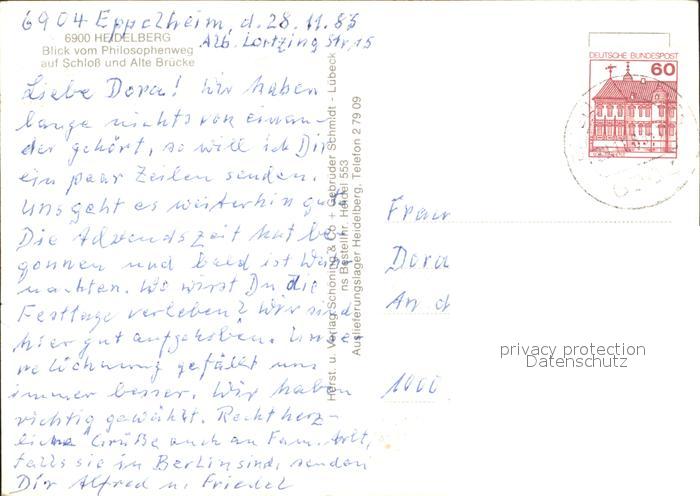 6904 Eppelheim, d. 28.11.83
6900 HEIDELBERG
Alb. Lortzing Str. 15
Blick vom Philosophenweg
auf Schloß und Alte Brücke
Liebe Dora! Wir haben
lange nichts von einan-
der gehört, so will ich Dir
ein paar Zeilen senden.
Uns geht es weiterhin gut.
Die Adventszeit hat be-
gonnen und bald ist Weih-
nachten. Wo wirst Du die
Festtage verleben? Wir sind
hier gut aufgehoben. Unse-
re Wohnung gefällt uns
immer besser. Wir haben
richtig gewählt. Recht herz-
liche Grüße auch an Fam.
falls sie in Berlin sind, senden
Dir Alfred u. Friedel
Horst. u. Verlag Schöning & Co + Gebrüder Schmidt - Lübeck
ns Bestellnr. Heidel 553
Auslieferungslager Heidelberg, Telefon 2 79 09
DEUTSCHE BUNDESPOST
60
Frau
Dora
An d
1000
privacy protection
Datenschutz